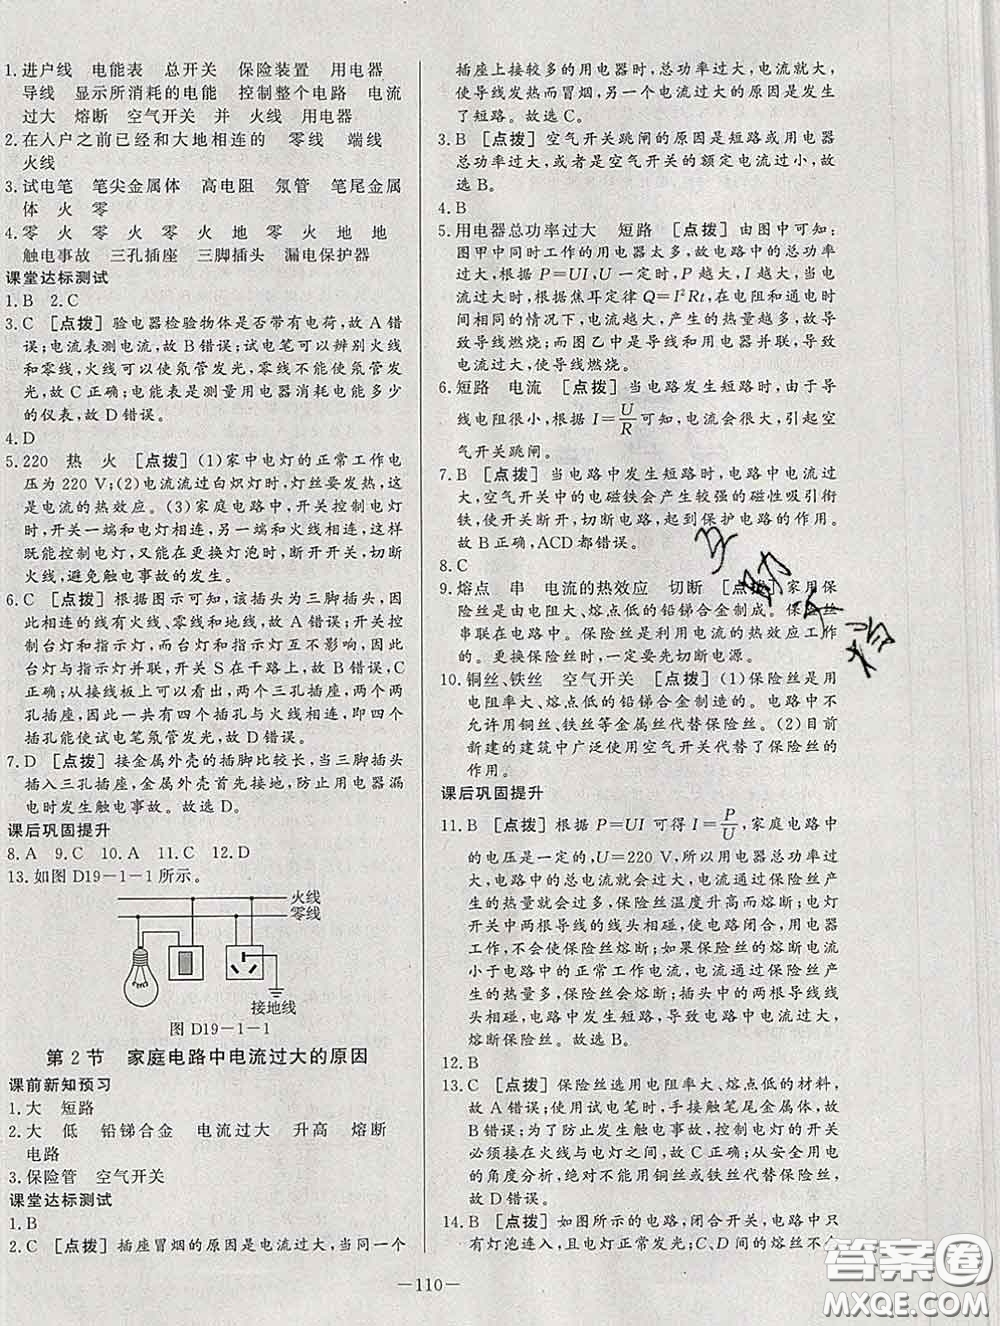 1.进户线 电能表 总开关 保险装置 用电器
导线 显示所消耗的电能 控制整个电路 电流
过大 熔断 空气开关 并 火线 用电器
2.在入户之前已经和大地相连的 零线 端线
火线
3.试电笔 笔尖金属体 高电阻 氖管 笔尾金属
体 火 零
4.零 火 零 火 零 火 地 零 火 地 地
触电事故 三孔插座 三脚插头 漏电保护器
课堂达标测试
1.B 2.C
3.C [点拨] 验电器检验物体是否带有电荷,故A错
误;电流表测电流,故B错误;试电笔可以辨别火线
和零线,火线可以使氖管发光,零线不能使氖管发
光,故C正确;电能表是测量用电器消耗电能多少
的仪表,故D错误。
4.D
5.220 热 火 [点拨] (1)家中电灯的正常工作电
压为220 V;(2)电流流过白炽灯时,灯丝要发热,这
是电流的热效应。(3)家庭电路中,开关控制电灯
时,开关一端和电灯相连,另一端和火线相连,这样
既能控制电灯,又能在更换灯泡时,断开开关,切断
火线,避免触电事故的发生。
6.C [点拨] 根据图示可知,该插头为三脚插头,因
此相连的线有火线、零线和地线,故A错误;开关控
制台灯和指示灯,因开关断开时指示灯不亮,因此
台灯与指示灯并联,开关S在干路上,故B错误,C
正确;从接线板上可以看到,两个三孔插座,两个两
孔插座,因此一共有四个插孔与火线相连,即四个
插孔能使试电笔氖管发光,故D错误。
7.D [点拨] 接金属外壳的插脚比较长,当三脚插头
插入三孔插座,金属外壳首先接地,防止因用电器漏
电时发生触电事故。故选D。
课后巩固提升
8.A 9.C 10.A 11.C 12.D
13.如图D19-1-1所示。
火线
零线
接地线
图 D19-1-1
第2节 家庭电路中电流过大的原因
课前新知预习
1.大 短路
2.大 低 铅锑合金 电流过大 升高 熔断
电路
3.保险管 空气开关
课堂达标测试
1.B
2.C [点拨] 插座冒烟的原因是电流过大,当同一个
插座上接较多的用电器时,总功率过大,电流就大,
使导线发热而冒烟,另一个电流过大的原因是发生
了短路。故选C。
3.B [点拨] 空气开关跳闸的原因是短路或用电器
总功率过大,或者是空气开关的额定电流过小,故
选B。
4.B
5.用电器总功率过大 短路 [点拨] 由图中可知:
图甲中同时工作的用电器太多,故电路中的总功率
过大,根据P=UI,U一定时,P越大,I越大,当电
流过大时,根据焦耳定律Q=I²Rt,在电阻和通电时
间相同的情况下,电流越大,产生的热量越多,故导
致导线燃烧;而图乙中是导线和用电器并联,导致
电流过大,使导线燃烧。
6.短路 电流 [点拨] 当电路发生短路时,由于导
线电阻很小,根据I=U/R可知,电流会很大,引起空
气开关跳闸。
7.B [点拨] 当电路中发生短路时,电路中电流过
大,空气开关中的电磁铁会产生较强的磁性吸引衔
铁,使开关断开,切断电路,起到保护电路的作用。
故B正确,ACD都错误。
8.C
9.熔点 串 电流的热效应 切断 [点拨] 家用保
险丝是由电阻大、熔点低的铅锑合金制成。保险丝
串联在电路中。保险丝是利用电流的热效应工作
的。更换保险丝时,一定要先切断电源。
10.铜丝、铁丝 空气开关 [点拨] (1)保险丝是用
电阻率大、熔点低的铅锑合金制造的。电路中不
允许用铜丝、铁丝等金属丝代替保险丝。(2)目前
新建的建筑中广泛使用空气开关代替了保险丝的
作用。
课后巩固提升
11.B [点拨] 根据P=UI可得I=P/U,家庭电路中
的电压是一定的,U=220 V,所以用电器总功率过
大,电路中的总电流就会过大,电流通过保险丝产
生的热量就会过多,保险丝温度升高而熔断;电灯
开关中两根导线的线头相碰,电路闭合,用电器
工作,不会使保险丝熔断;如果保险丝的熔断电流
小于电路中的正常工作电流,电流通过保险丝产
生的热量多,保险丝会熔断;插头中的两根导线线
头相碰,会造成电路短路,电路中电流过大,保险丝
熔断。故选B。
12.B
13.C [点拨] 保险丝选用电阻率大、熔点低的材料,
故A错误;使用试电笔时,手接触笔尾金属体,故
B错误;为了防止发生触电事故,控制电灯的开关
必须接在火线与电灯之间,故C正确;从安全用电
的角度分析,绝对不能用铜丝或铁丝代替保险丝,
故D错误。
14.B [点拨] 如图所示的电路,闭合开关,电路中只
有灯泡连入,且电灯正常发光;C、D间的熔丝不
—110—
互助文档
答案圈
MXQE.COM